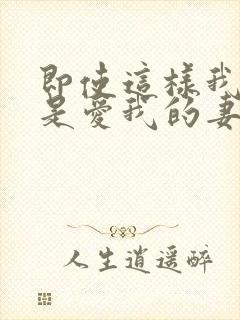 即使這樣我
是愛我的妻
人生逍遥醉